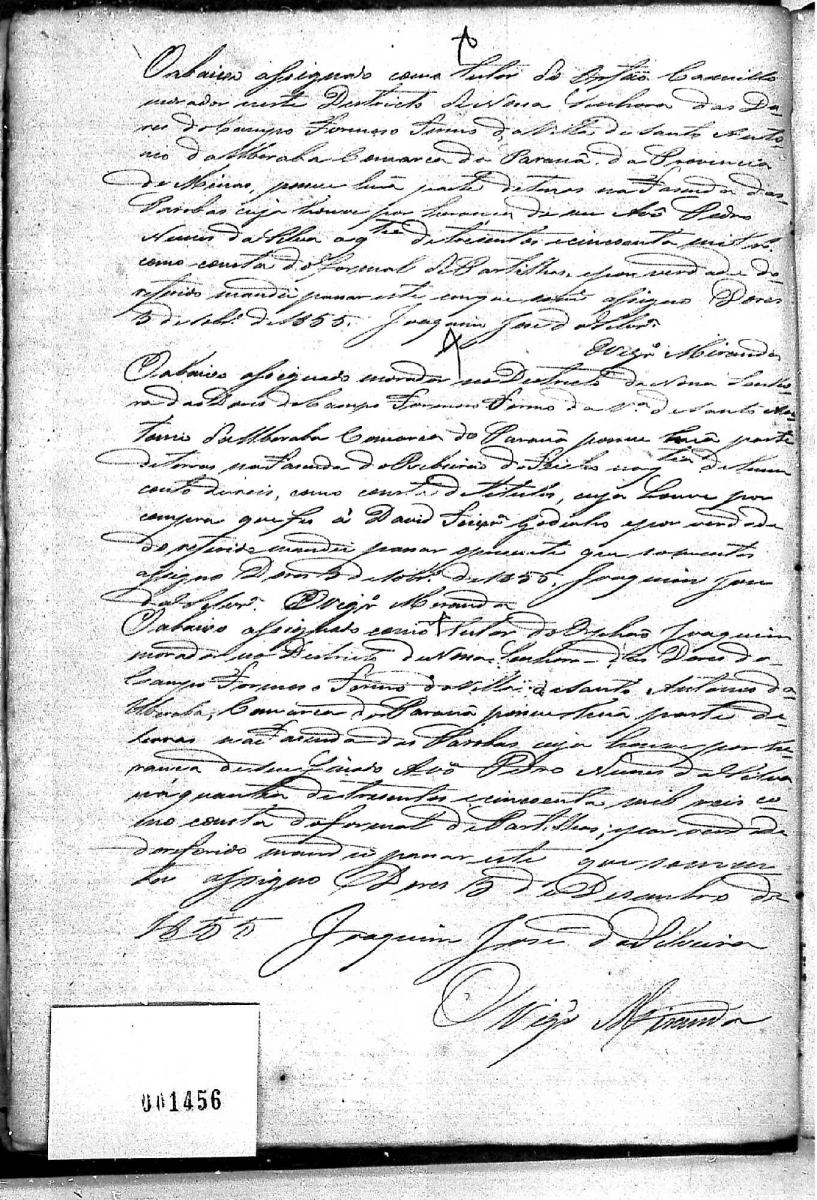 O abaixo assignado como tutor do Orfaõ Camillo
morador neste Districto de Nossa Senhora das Do-
res do Campo Formoso Termo da Villa de Santo Anto-
nio da Uberaba Comarca do Paraná da Provincia
de Minas, possue huã parte de terras na Fazenda das
Parobas cuja houve por herança de seu Avô Pedro
Nunes da Silva a qtia de tresentos e cincoenta mil rs
como consta do formal de Partilhas, e por verdade do
referido mandei passar este em que assigno Dores
5 de de 1855. Joaquim José da Silvra
O Vigro Miranda
O abaixo assignado morador no Districto de Nossa Senho-
ra das Dores do Campo Formoso Termo da Va de Santo An-
tonio da Uberaba Comarca do Paraná possue huã parte
de terras na Fazenda do Ribeirão do na qtia de hum
conto de reis, como consta de titulos, cuja houve por
compra que fes á David Godinho e por verdade
do referido mandei passar o presente que somente
assigno Dores 5 de de 1855. Joaquim José
da Silvra. O Vigro Miranda
O abaixo assignado como tutor do Orphão Joaquim
morador no Districto de Nossa Senhora das Dores do
Campo Formoso Termo da Villa de Santo Antonio da
Uberaba, Comarca do Paraná possue huã parte de
terras na Fazenda das Parobas cuja houve por he-
rança de seu Finado Avô Pedro Nunes da Silva
na quantia de tresentos e cincoenta mil reis co-
mo consta do formal de Partilhas, e por verdade
do referido mandei passar este que somen-
te assigno Dores 5 de Desembro de
1855 Joaquim José da Silveira
O Vigro Miranda
001456